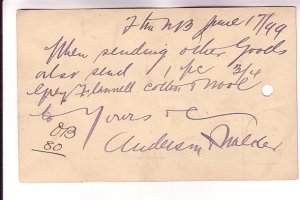 June 17/99
When sending other Goods
also send 1 pc 3/4
Grey Flannell cotton & Wool
Yours &c
80
Anderson